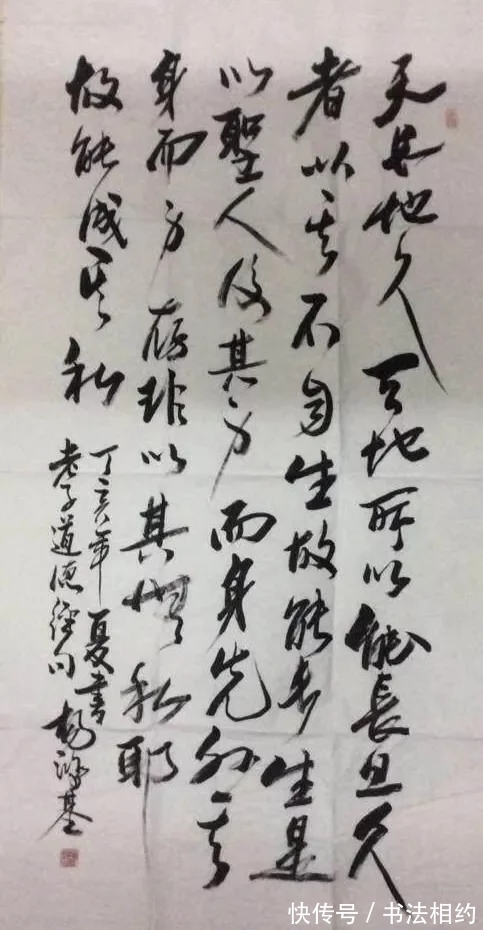 天長地久天地所以能長且久
者以其不自生故能長生是
以聖人後其身而身先外其
身而身存非以其無私耶
故能成其私
丁亥年夏書
老子道德經句 楊鴻基
快传号 / 书法相约